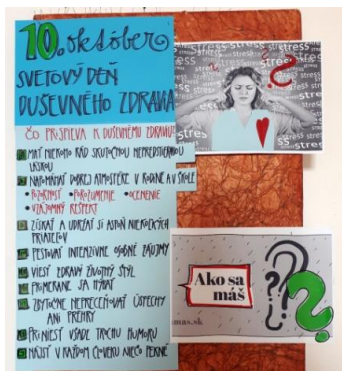 10. október
SVETOVÝ DEŇ
DUŠEVNÉHO ZDRAVIA
ČO PRISPIEVA K DUŠEVNÉMU ZDRAVIU?
MAŤ NIEKOHO RÁD SKUTOČNOU NEPREDSTIERANOU
LÁSKOU
NAPOMÁHAŤ DOBREJ ATMOSFÉRE V RODINE A V ŠKOLE
• POZORNOSŤ • POROZUMENIE • OCENENIE
• VZÁJOMNÝ REŠPEKT
ZÍSKAŤ A UDRŽAŤ SI ASPOŇ NIEKOĽKÝCH
PRIATEĽOV
PESTOVAŤ INTENZÍVNE OSOBNÉ ZÁUJMY
VIESŤ ZDRAVÝ ŽIVOTNÝ ŠTÝL
PRIMERANE SA HÝBAŤ
ZBYTOČNE NEPRECEŇOVAŤ ÚSPECHY
ANI PREHRY
PRINIESŤ VŠADE TROCHU HUMORU
NÁJSŤ V KAŽDOM ČLOVEKU NIEČO PEKNÉ
stress stress stress
Ako sa
máš
mas.sk